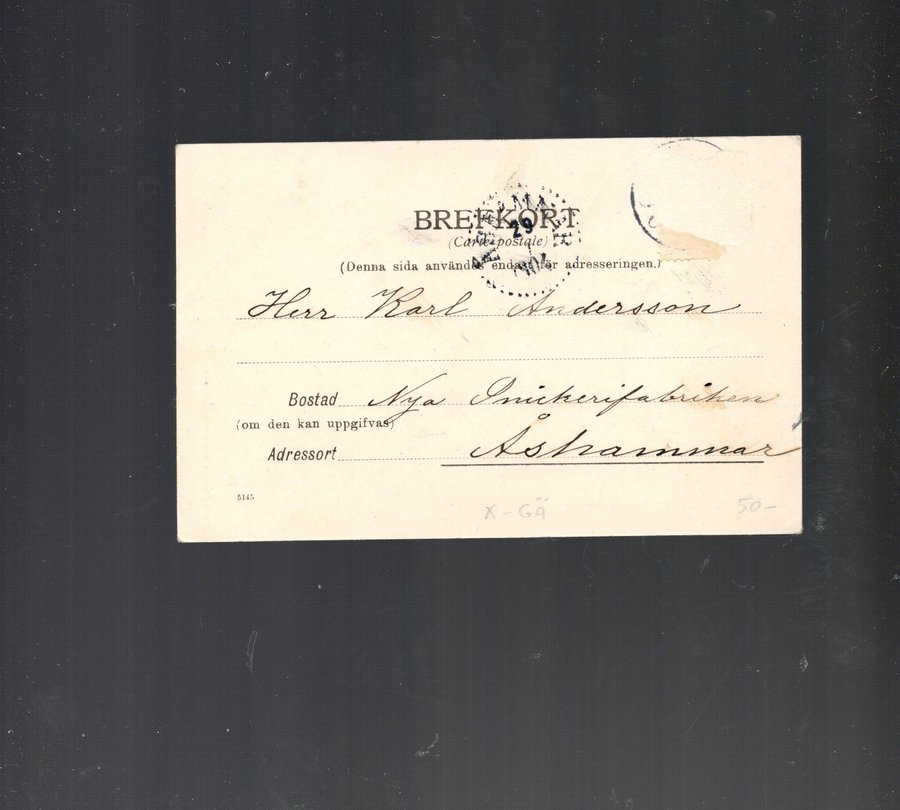 BREFKORT
(Carte postale)
29
(Denna sida användes endast för adresseringen.)
Herr Karl Andersson
Bostad Nya Snickerifabriken
(om den kan uppgifvas)
Adressort Åshammar
5145
X-GÄ
50-